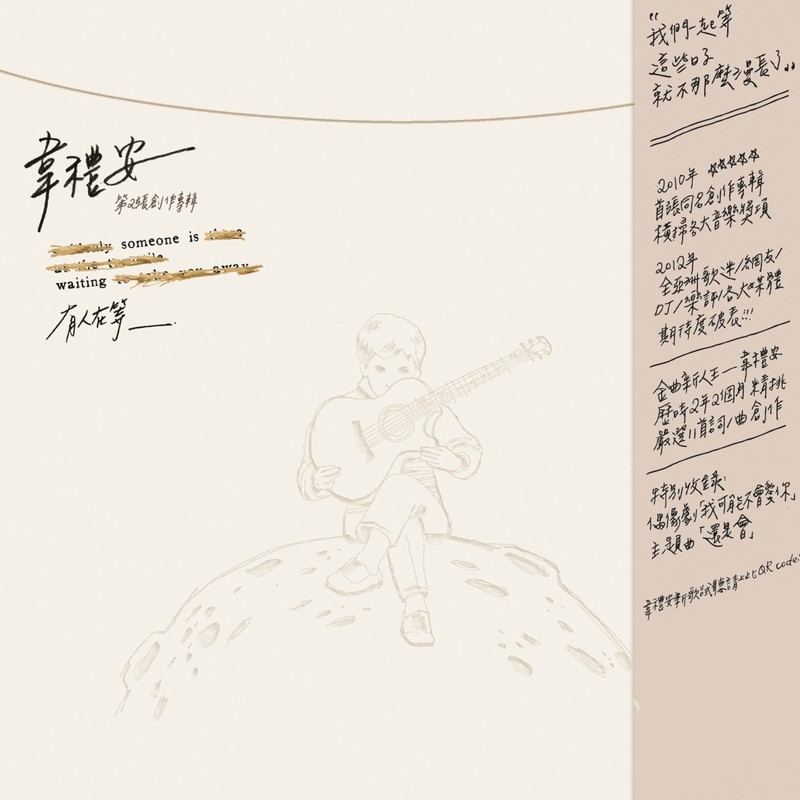 韋禮安
第2張創作專輯
someone is
waiting
有人在等__.
"我們一起等
這些日子
就不那麼漫長了"
2010年 ☆☆☆☆☆
首張同名創作專輯
橫掃各大音樂獎項
2012年
全亞洲歌迷/網友/
DJ/樂評/各大媒體
期待度破表!!!
金曲新人王—韋禮安
歷時2年2個月精挑
嚴選11首詞/曲創作
特別收錄:
偶像劇「我可能不會愛你」
主題曲「還是會」
韋禮安新歌試聽請上此QR code: